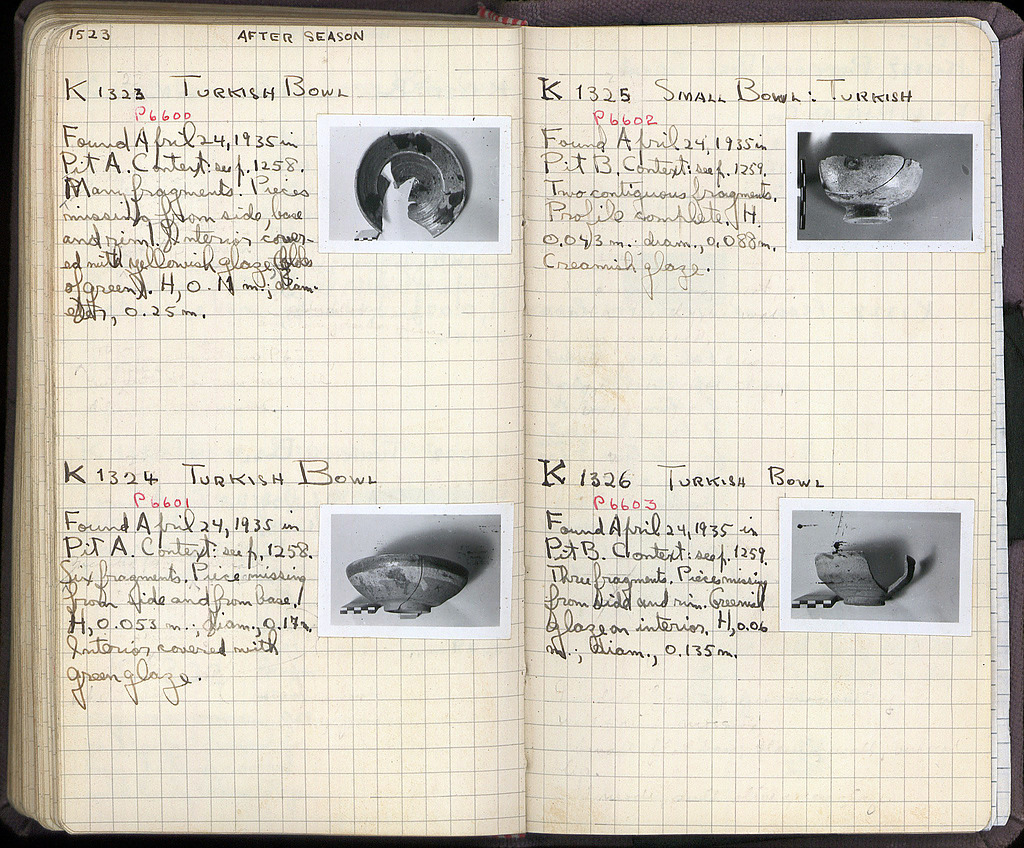 1523 AFTER SEASON
K 1323 TURKISH BOWL
P6600
Found April 24, 1935 in
Pit A. Context: see p. 1258.
Many fragments. Pieces
missing from side, base
and rim. Interior cover-
ed with yellowish glaze,
of green). H, 0.11 m.; diam-
eter, 0.25 m.
K 1324 TURKISH BOWL
P6601
Found April 24, 1935 in
Pit A. Context: see p. 1258.
Six fragments. Piece missing
from side and from base.
H, 0.053 m.; diam., 0.17 m.
Interior covered with
green glaze.
K 1325 SMALL BOWL: TURKISH
P6602
Found April 24, 1935 in
Pit B. Context: see p. 1259.
Two contiguous fragments.
Profile complete. H.
0.043 m.; diam., 0.088 m.
Creamish glaze.
K 1326 TURKISH BOWL
P6603
Found April 24, 1935 in
Pit B. Context: see p. 1259.
Three fragments. Pieces missing
from side and rim.
glaze on interior. H, 0.06
m.; diam., 0.135 m.